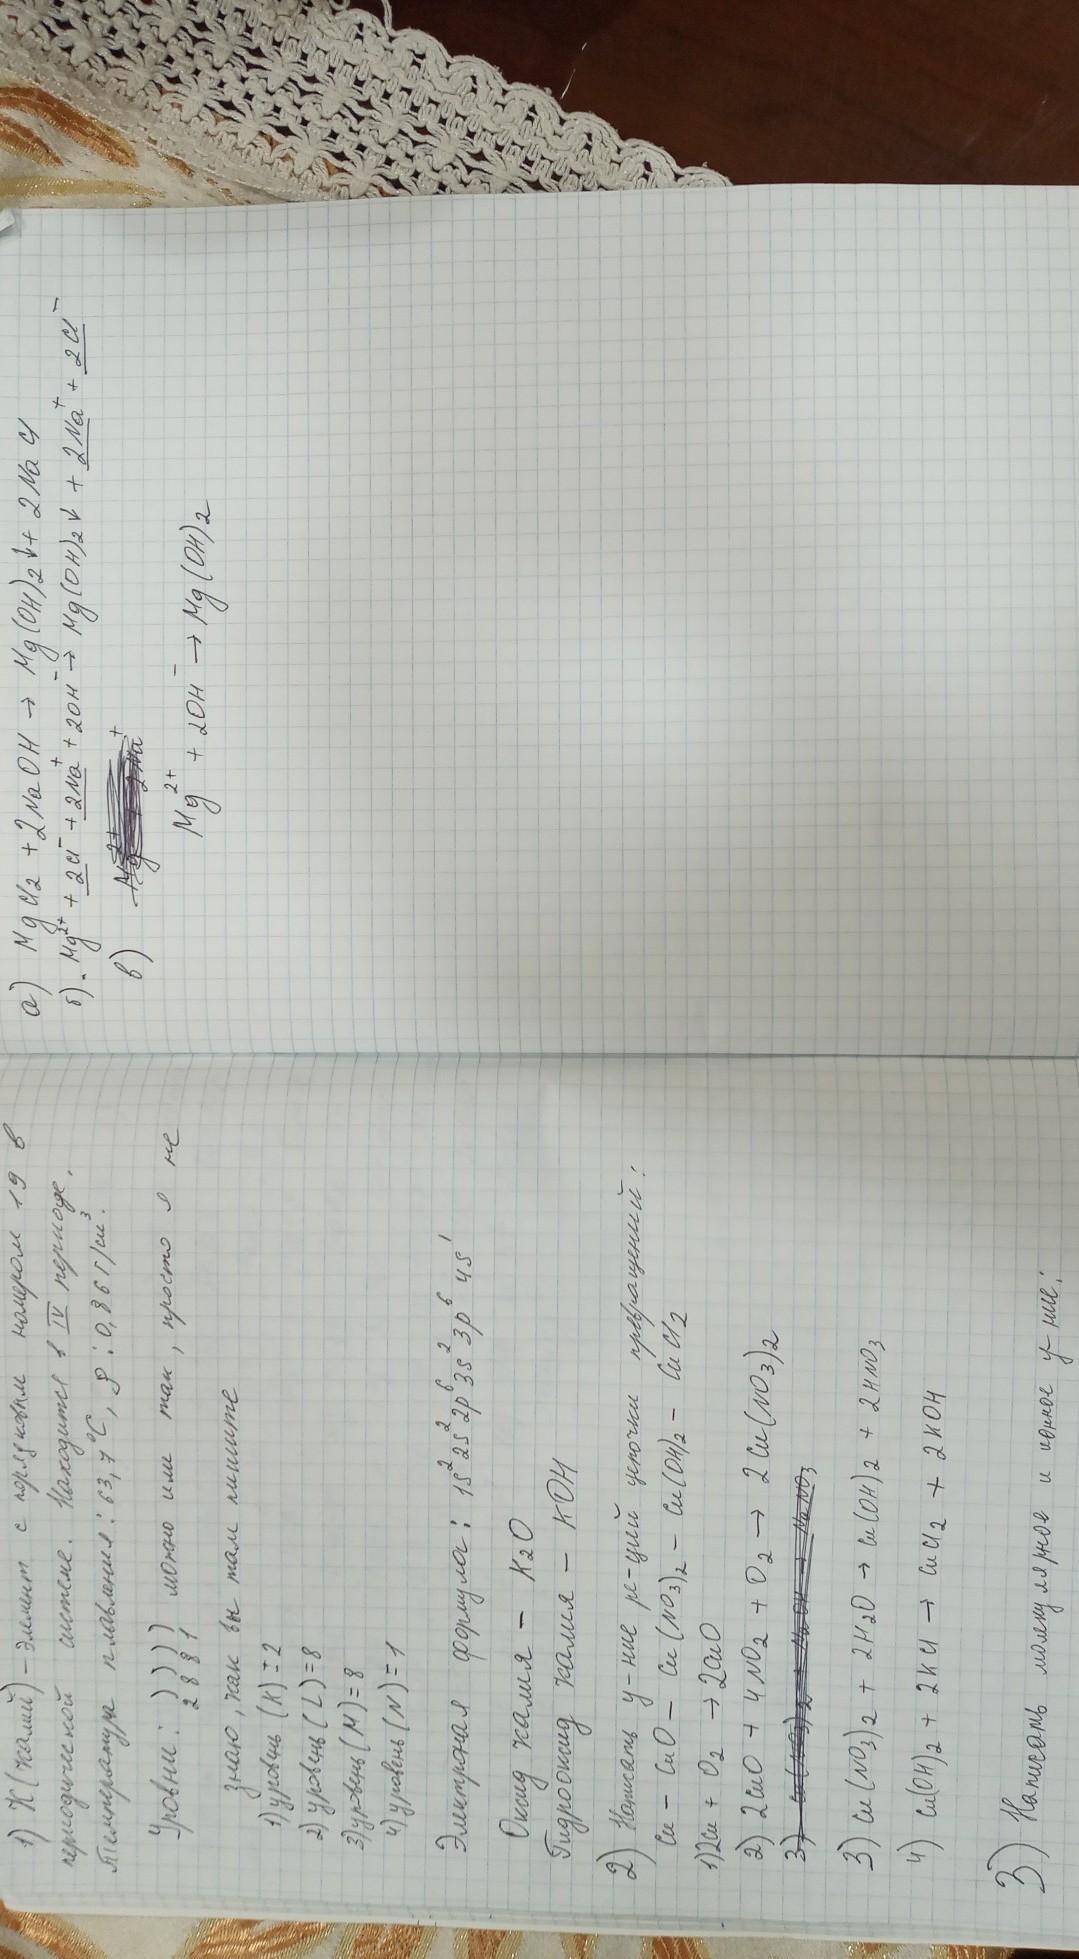 1) K (калий) – элемент с порядковым номером 19 в
периодической системе. Находится в IV периоде.
Температура плавления: 63,7°C, ρ: 0,86 г/см³.
Уровни: ) ) ) ) можно или так, просто я не
2 8 8 1
знаю, как вы там пишите
1) уровень (K) = 2
2) уровень (L) = 8
3) уровень (M) = 8
4) уровень (N) = 1
Электронная формула: 1s² 2s² 2p⁶ 3s² 3p⁶ 4s¹
Оксид калия – K2O
Гидрооксид калия – KOH
2) Написать у-ние ре-ций цепочки превращений:
Cu – CuO – Cu(NO3)2 – Cu(OH)2 – CuCl2
1) 2Cu + O2 → 2CuO
2) 2CuO + 4NO2 + O2 → 2Cu(NO3)2
3) Cu(NO3)2 + 2H2O → Cu(OH)2 + 2HNO3
4) Cu(OH)2 + 2KCl → CuCl2 + 2KOH
3) Написать молекулярное и ионное у-ние:
а) MgCl2 + 2NaOH → Mg(OH)2↓ + 2NaCl
б). Mg²⁺ + 2Cl⁻ + 2Na⁺ + 2OH⁻ → Mg(OH)2↓ + 2Na⁺ + 2Cl⁻
в)
Mg²⁺ + 2OH⁻ → Mg(OH)2